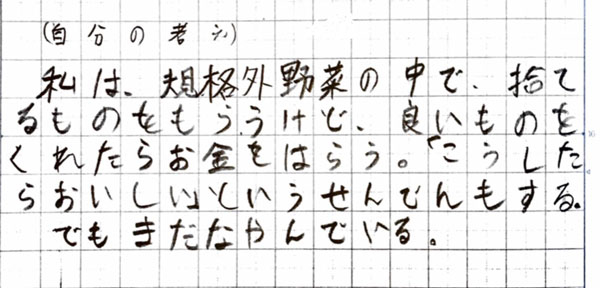 (自分の考え)
私は、規格外野菜の中で、捨て
るものをもらうけど、良いものを
くれたらお金をはらう。「こうした
らおいしい」というせんでんもする。
でもまだなやんでいる。